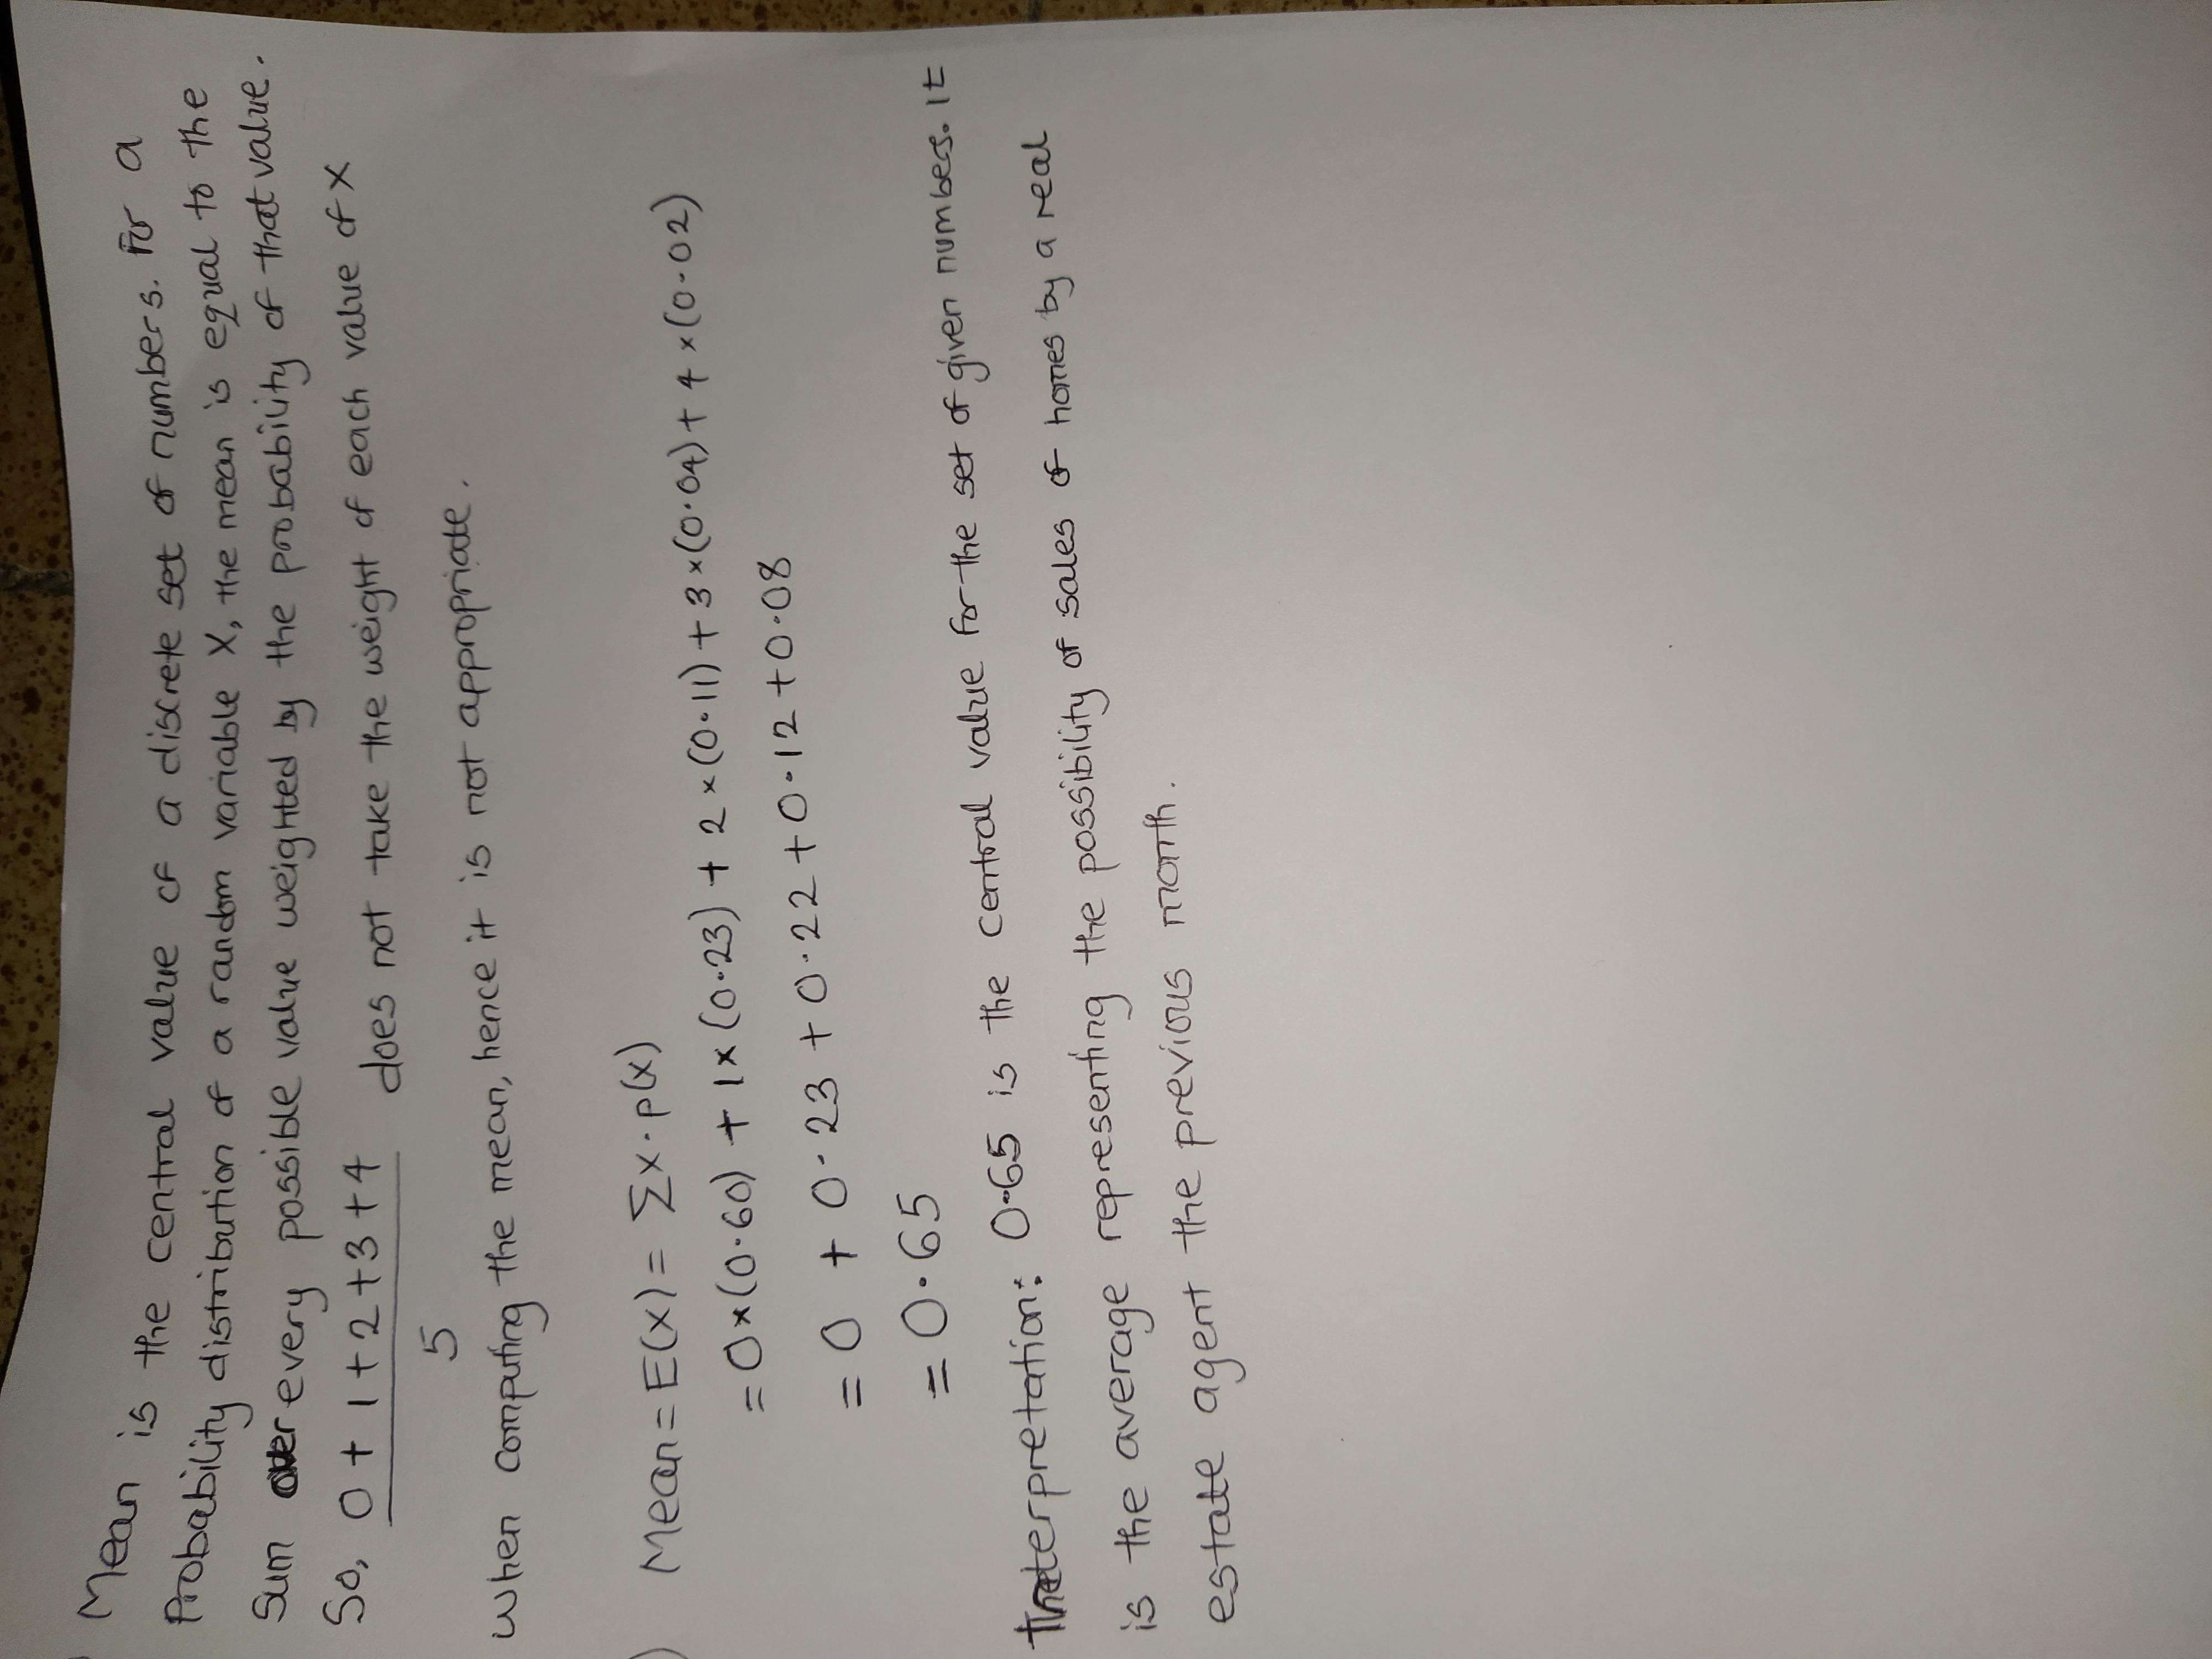 Mean is the central value of a discrete set of numbers. For a
Probability distribution of a random variable X, the mean is equal to the
Sum over every possible value weighted by the probability of that value.
So, 0 + 1 + 2 + 3 + 4 does not take the weight of each value of X
5
when computing the mean, hence it is not appropriate.
) Mean = E(X) = Σx·p(x)
= 0×(0·60) + 1×(0·23) + 2×(0·11) + 3×(0·04) + 4×(0·02)
= 0 + 0·23 + 0·22 + 0·12 + 0·08
= 0·65
Interpretation: 0·65 is the central value for the set of given numbers. It
is the average representing the possibility of sales of homes by a real
estate agent the previous month.